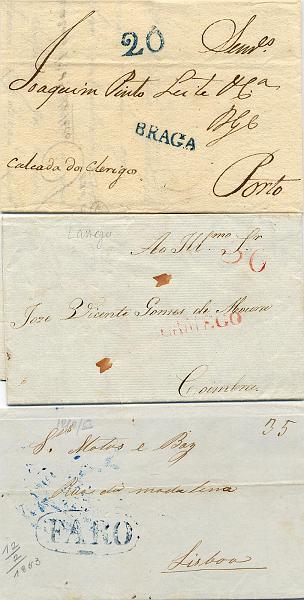 20
Senres
Joaquim Pinto Leite & Ca
BRAGA
Calcada dos Clerigos
Porto
Lamego
Ao Illmo Sr
50
Joze Vicente Gomes de Moura
LAMEGO
Coimbra
35
Srs Matos e Braz
Rua da madalena
FARO
12
2
1853
Lisboa